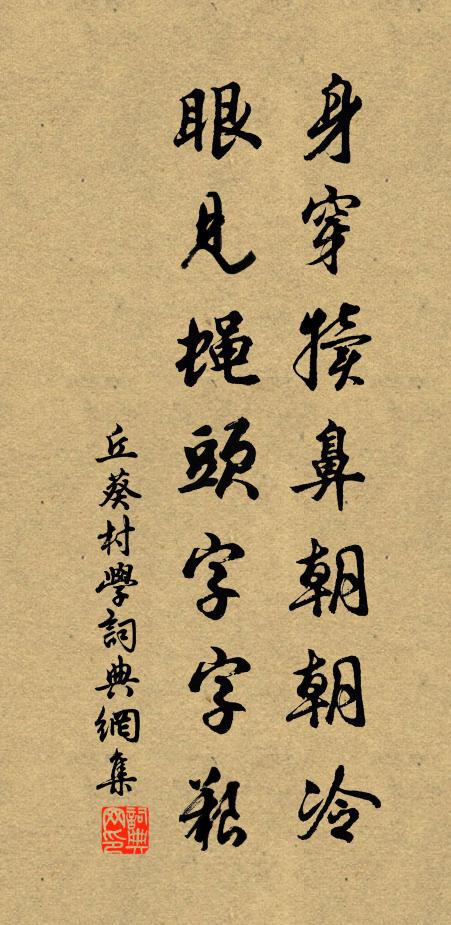 身穿犢鼻朝朝冷
眼見蝿頭字字艱
丘葵村學詞典網集
詞典网印